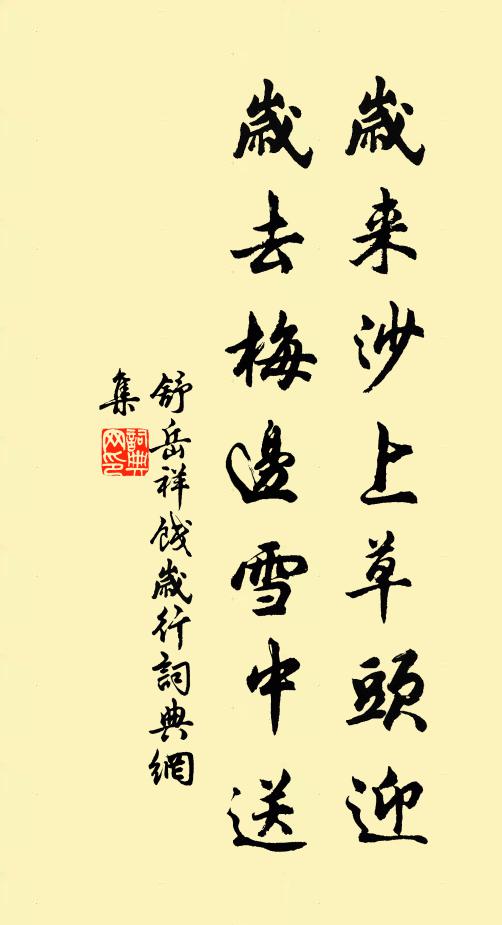 歲来沙上草頭迎
歲去梅邊雪中送
舒岳祥餞歲行詞典網
集
詞典
网印